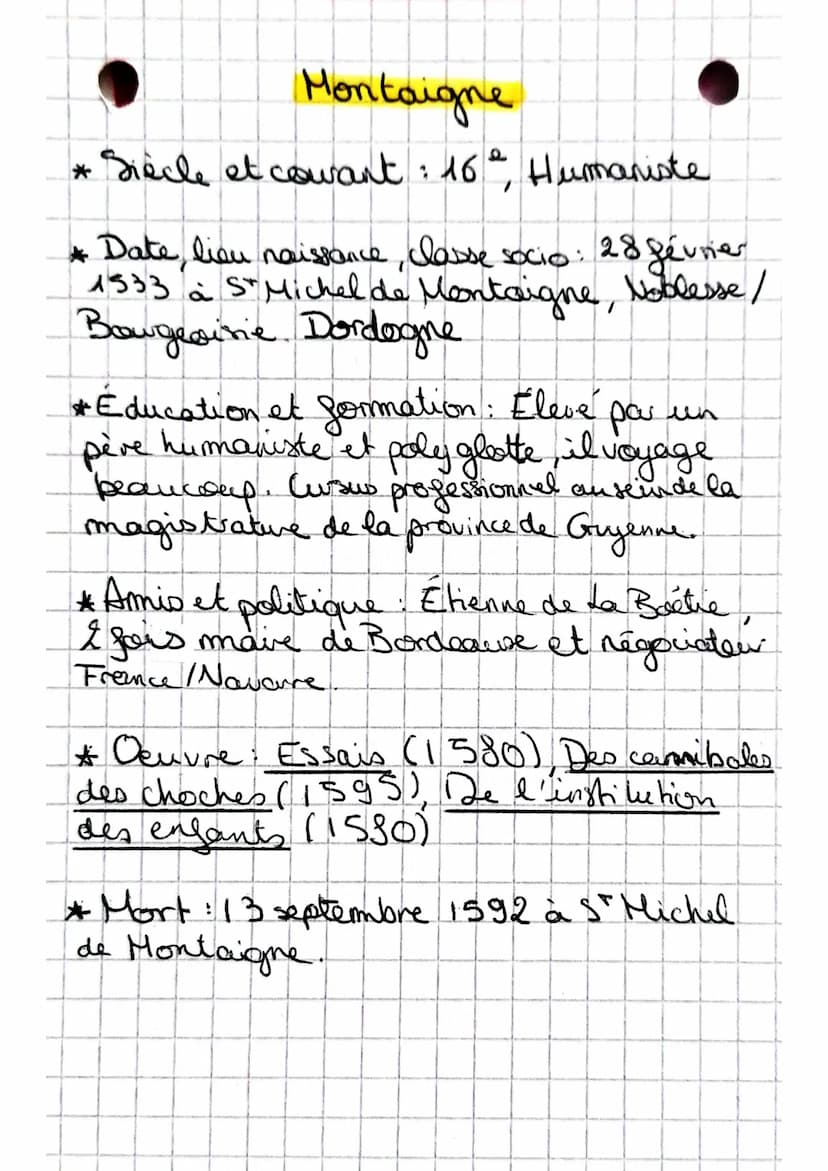 Montaigne
* Siècle et courant : 16e, Humaniste
* Date, lieu naissance, classe socio : 28 février
1533 à St Michel de Montaigne, Noblesse /
Bourgeoisie. Dordogne
* Éducation et formation : Élevé par un
père humaniste et polyglotte, il voyage
beaucoup. Cursus professionnel au sein de la
magistrature de la province de Guyenne.
* Amis et politique : Étienne de La Boétie,
2 fois maire de Bordeaux et négociateur
France/Navarre.
* Oeuvre : Essais (1580), Des cannibales
des choches (1595), De l'institution
des enfants (1580)
* Mort : 13 septembre 1592 à St Michel
de Montaigne.